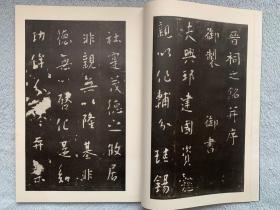 晉祠之銘并序
御製 御書
夫興邦建國資懿
親以作輔分珪錫
社寔茂德之攸居
非親無以隆基非
德無以啓化是知
功侔分